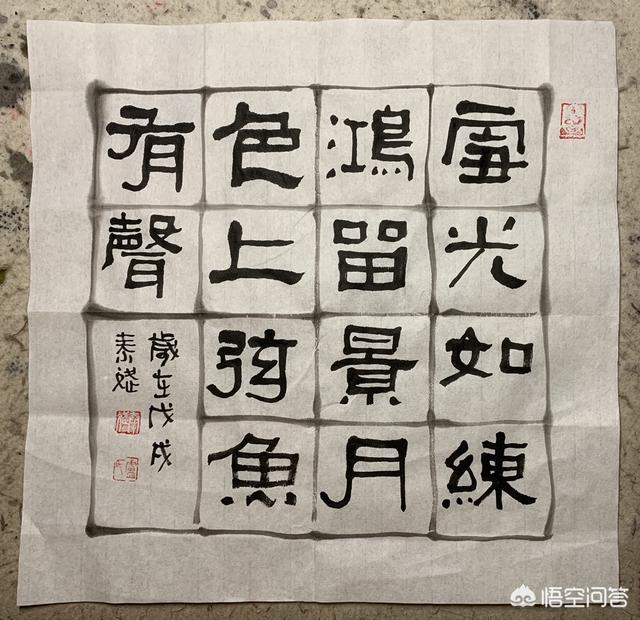 雪光如練
鴻留景月
色上弦魚
有聲
歲在戊戌
悟空问答